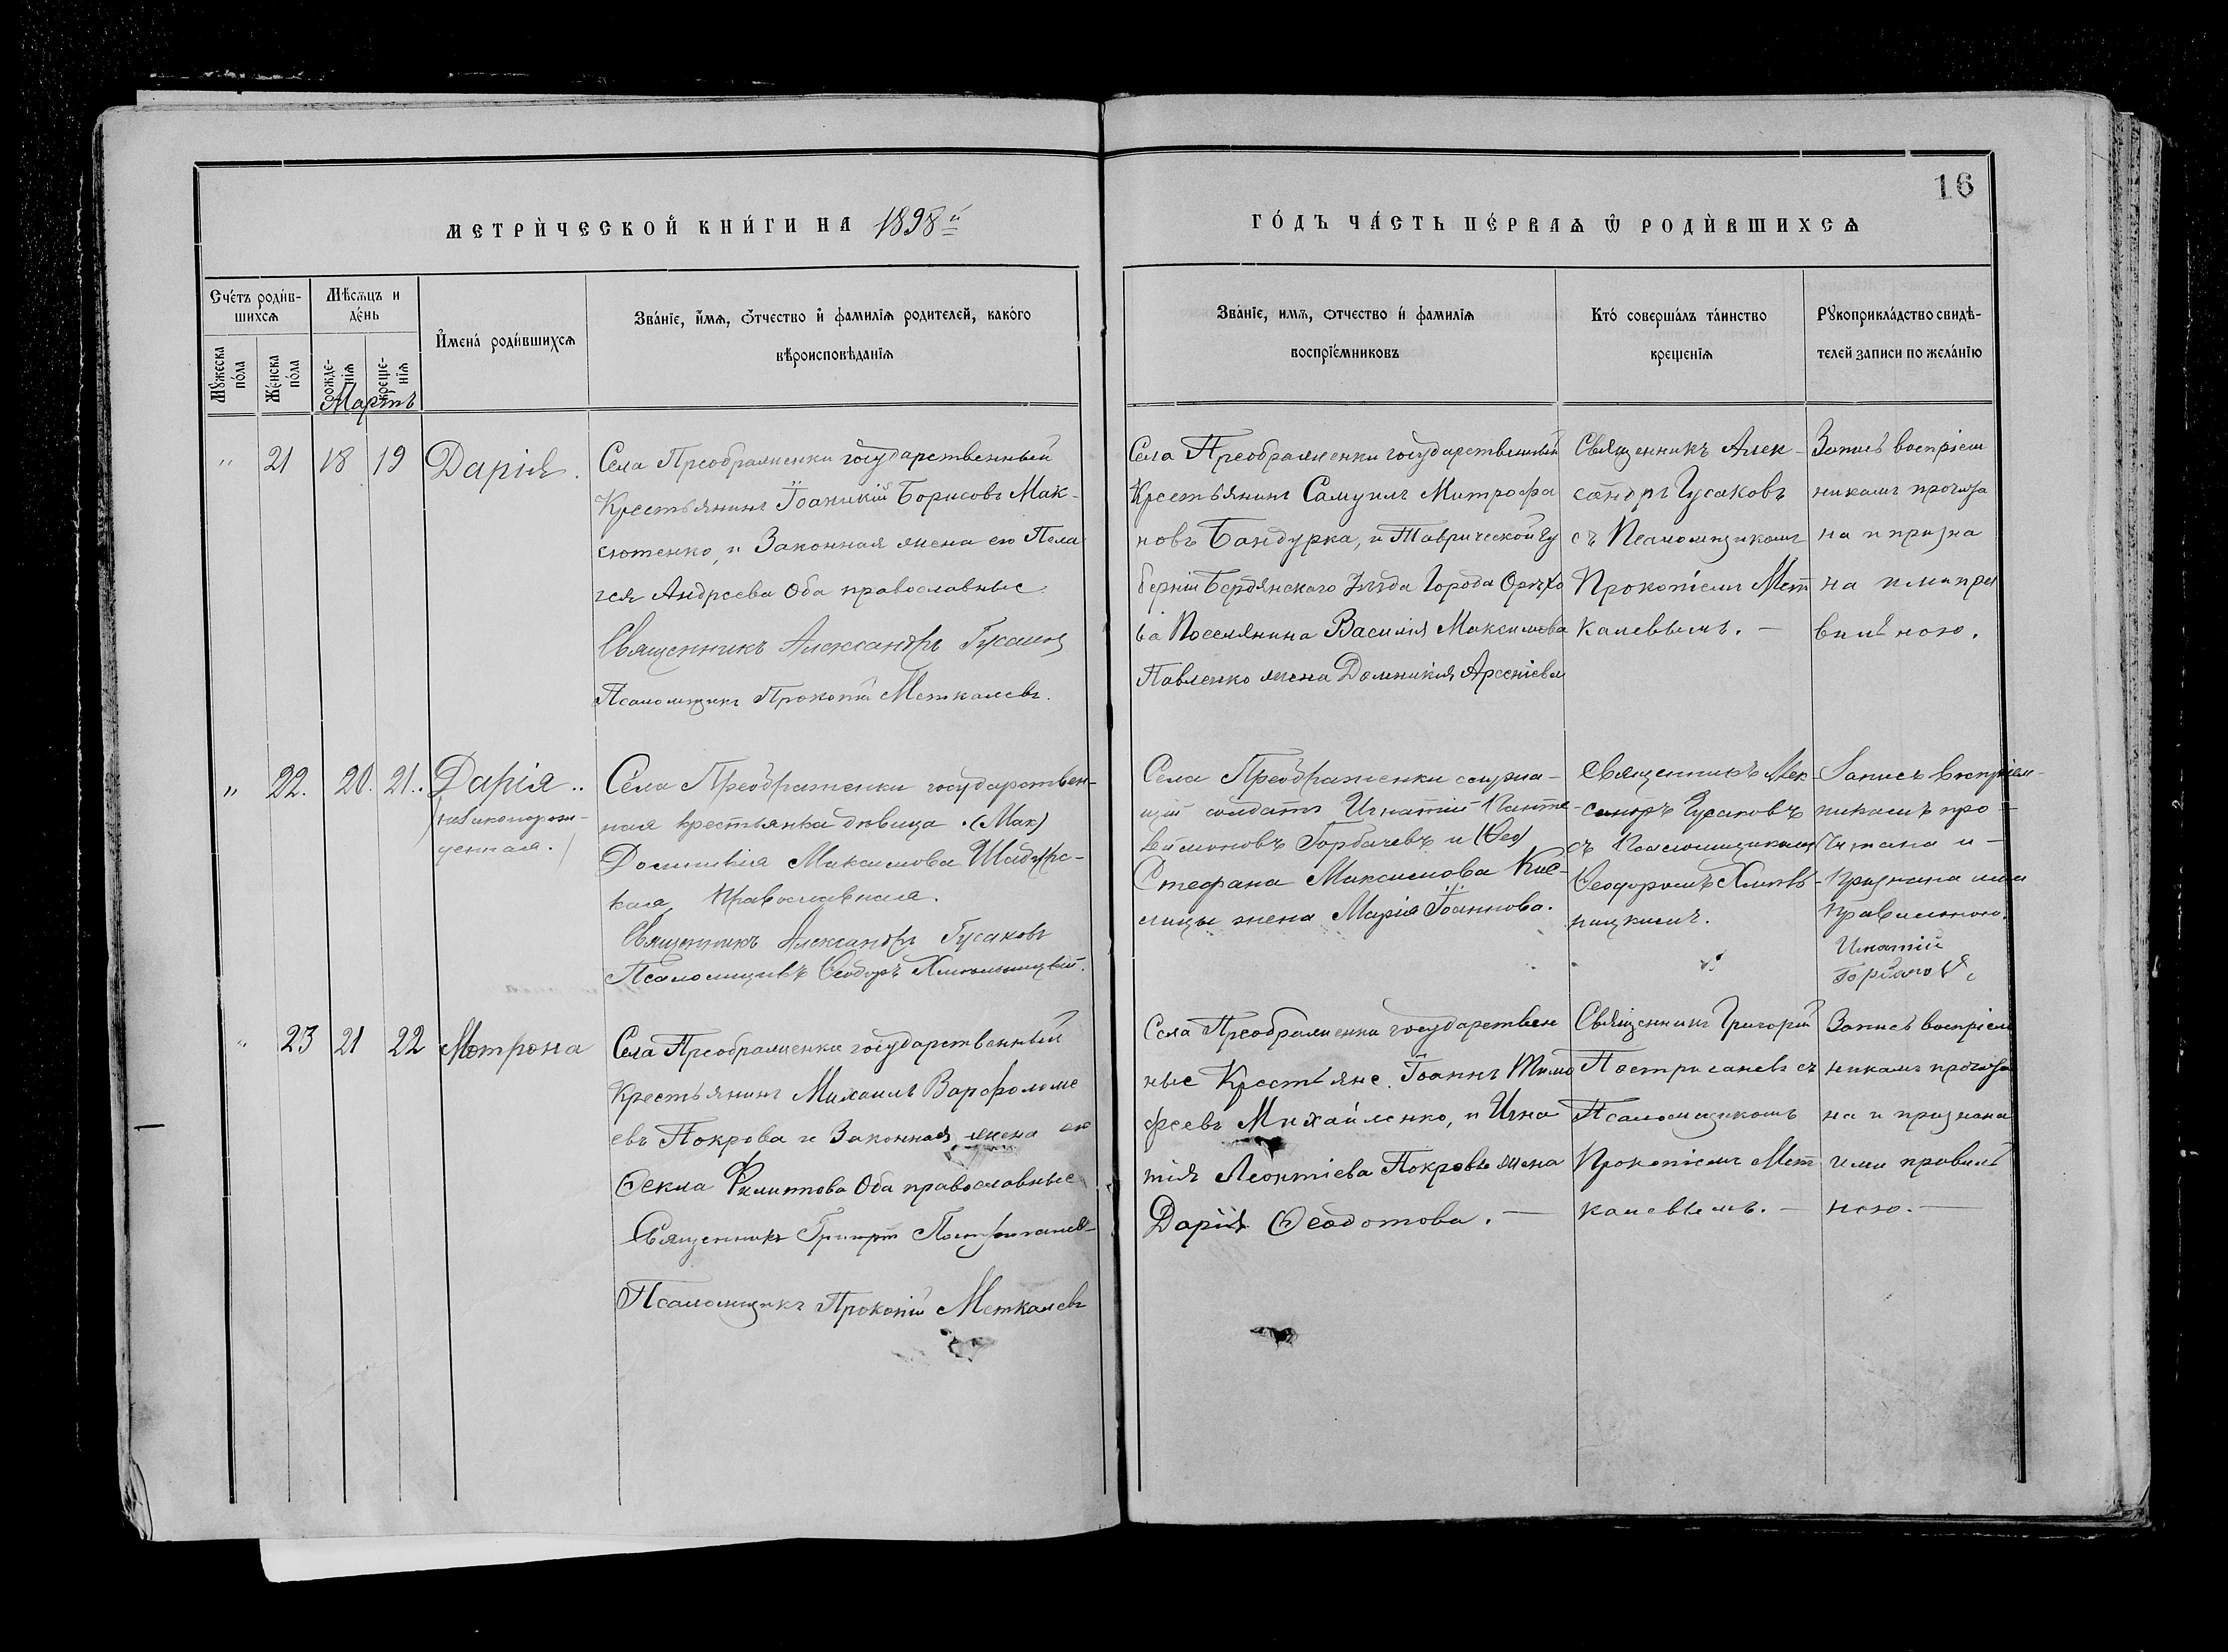 16
МЕТРИЧЕСКОЙ КНИГИ НА 1898й
ГОДЪ ЧАСТЬ ПЕРВАѦ Ѿ РОДИВШИХСѦ
Счетъ родив-
шихсѧ
Мѣсѧцъ и
день
Имена родившихсѧ
Званіе, имѧ, ѻтчество и фамиліѧ родителей, какого
вѣроисповѣданіѧ
Мꙋжеска
пола
Женска
пола
рожде-
ніѧ
креще-
ніѧ
Мартъ
Званіе, имѧ, ѻтчество и фамиліѧ
воспріемниковъ
Кто совершалъ таинство
крещеніѧ
Рꙋкоприкладство свидѣ-
телей записи по желанію
" 21 18 19 Дарія.
Села Преображенки государственный
Крестьянинъ Іоаникій Борисовъ Мак-
сютенко, и Законная жена его Пела
гея Андреева Оба православные
Священникъ Александръ Гусаковъ
Псаломщикъ Прокопій Меткалевъ.
Села Преображенки государственный
Крестьянинъ Самуилъ Митрофа
новъ Бандурка, и Таврической Гу
берніи Бердянскаго Уѣзда Города Орѣхо
ва Поселянина Василія Максимова
Павленко жена Домникія Арсеніева
Священникъ Алек-
сандръ Гусаковъ
съ Псаломщикомъ
Прокопіемъ Мет
калевымъ. —
Запись воспріем
никамъ прочита
на и призна
на ими пра
вильною.
" 22. 20. 21. Дарія..
(незаконорож-
денная.)
Села Преображенки государствен-
ная крестьянка девица (Мак)
Домникія Максимова Шабѣльс-
кая, Православная.
Священникъ Александръ Гусаковъ
Псаломщикъ Ѳеодоръ Хмельницкій.
Села Преображенки
солдатъ Игнатій Панте-
леймоновъ Горбачевъ и (Ѳео)
Стефана Максимова Кис-
лицы жена Марія Іоаннова.
Священникъ Алек-
сандръ Гусаковъ
съ Псаломщикомъ
Ѳеодоромъ Хмель-
ницкимъ.
Запись воспріем-
никамъ про-
читана и -
признана ими
правильною.
Игнатій
Горбачовъ
" 23 21 22 Матрона
Села Преображенки государственный
Крестьянинъ Михаилъ Варфоломе
евъ Покрова и Законная жена его
Ѳекла Филиппова Оба православные
Священникъ Григорій Постригановъ
Псаломщикъ Прокопій Меткалевъ
Села Преображенки государствен
ные Крестьяне. Іоаннъ Тимо
феевъ Михайленко, и Игна
тія Леонтіева Покрова жена
Дарія Ѳеодотова. —
Священникъ Григорій
Постригановъ съ
Псаломщикомъ
Прокопіемъ Мет
калевымъ. —
Запись воспріем
никамъ прочита
на и признана
ими правиль
ною. —